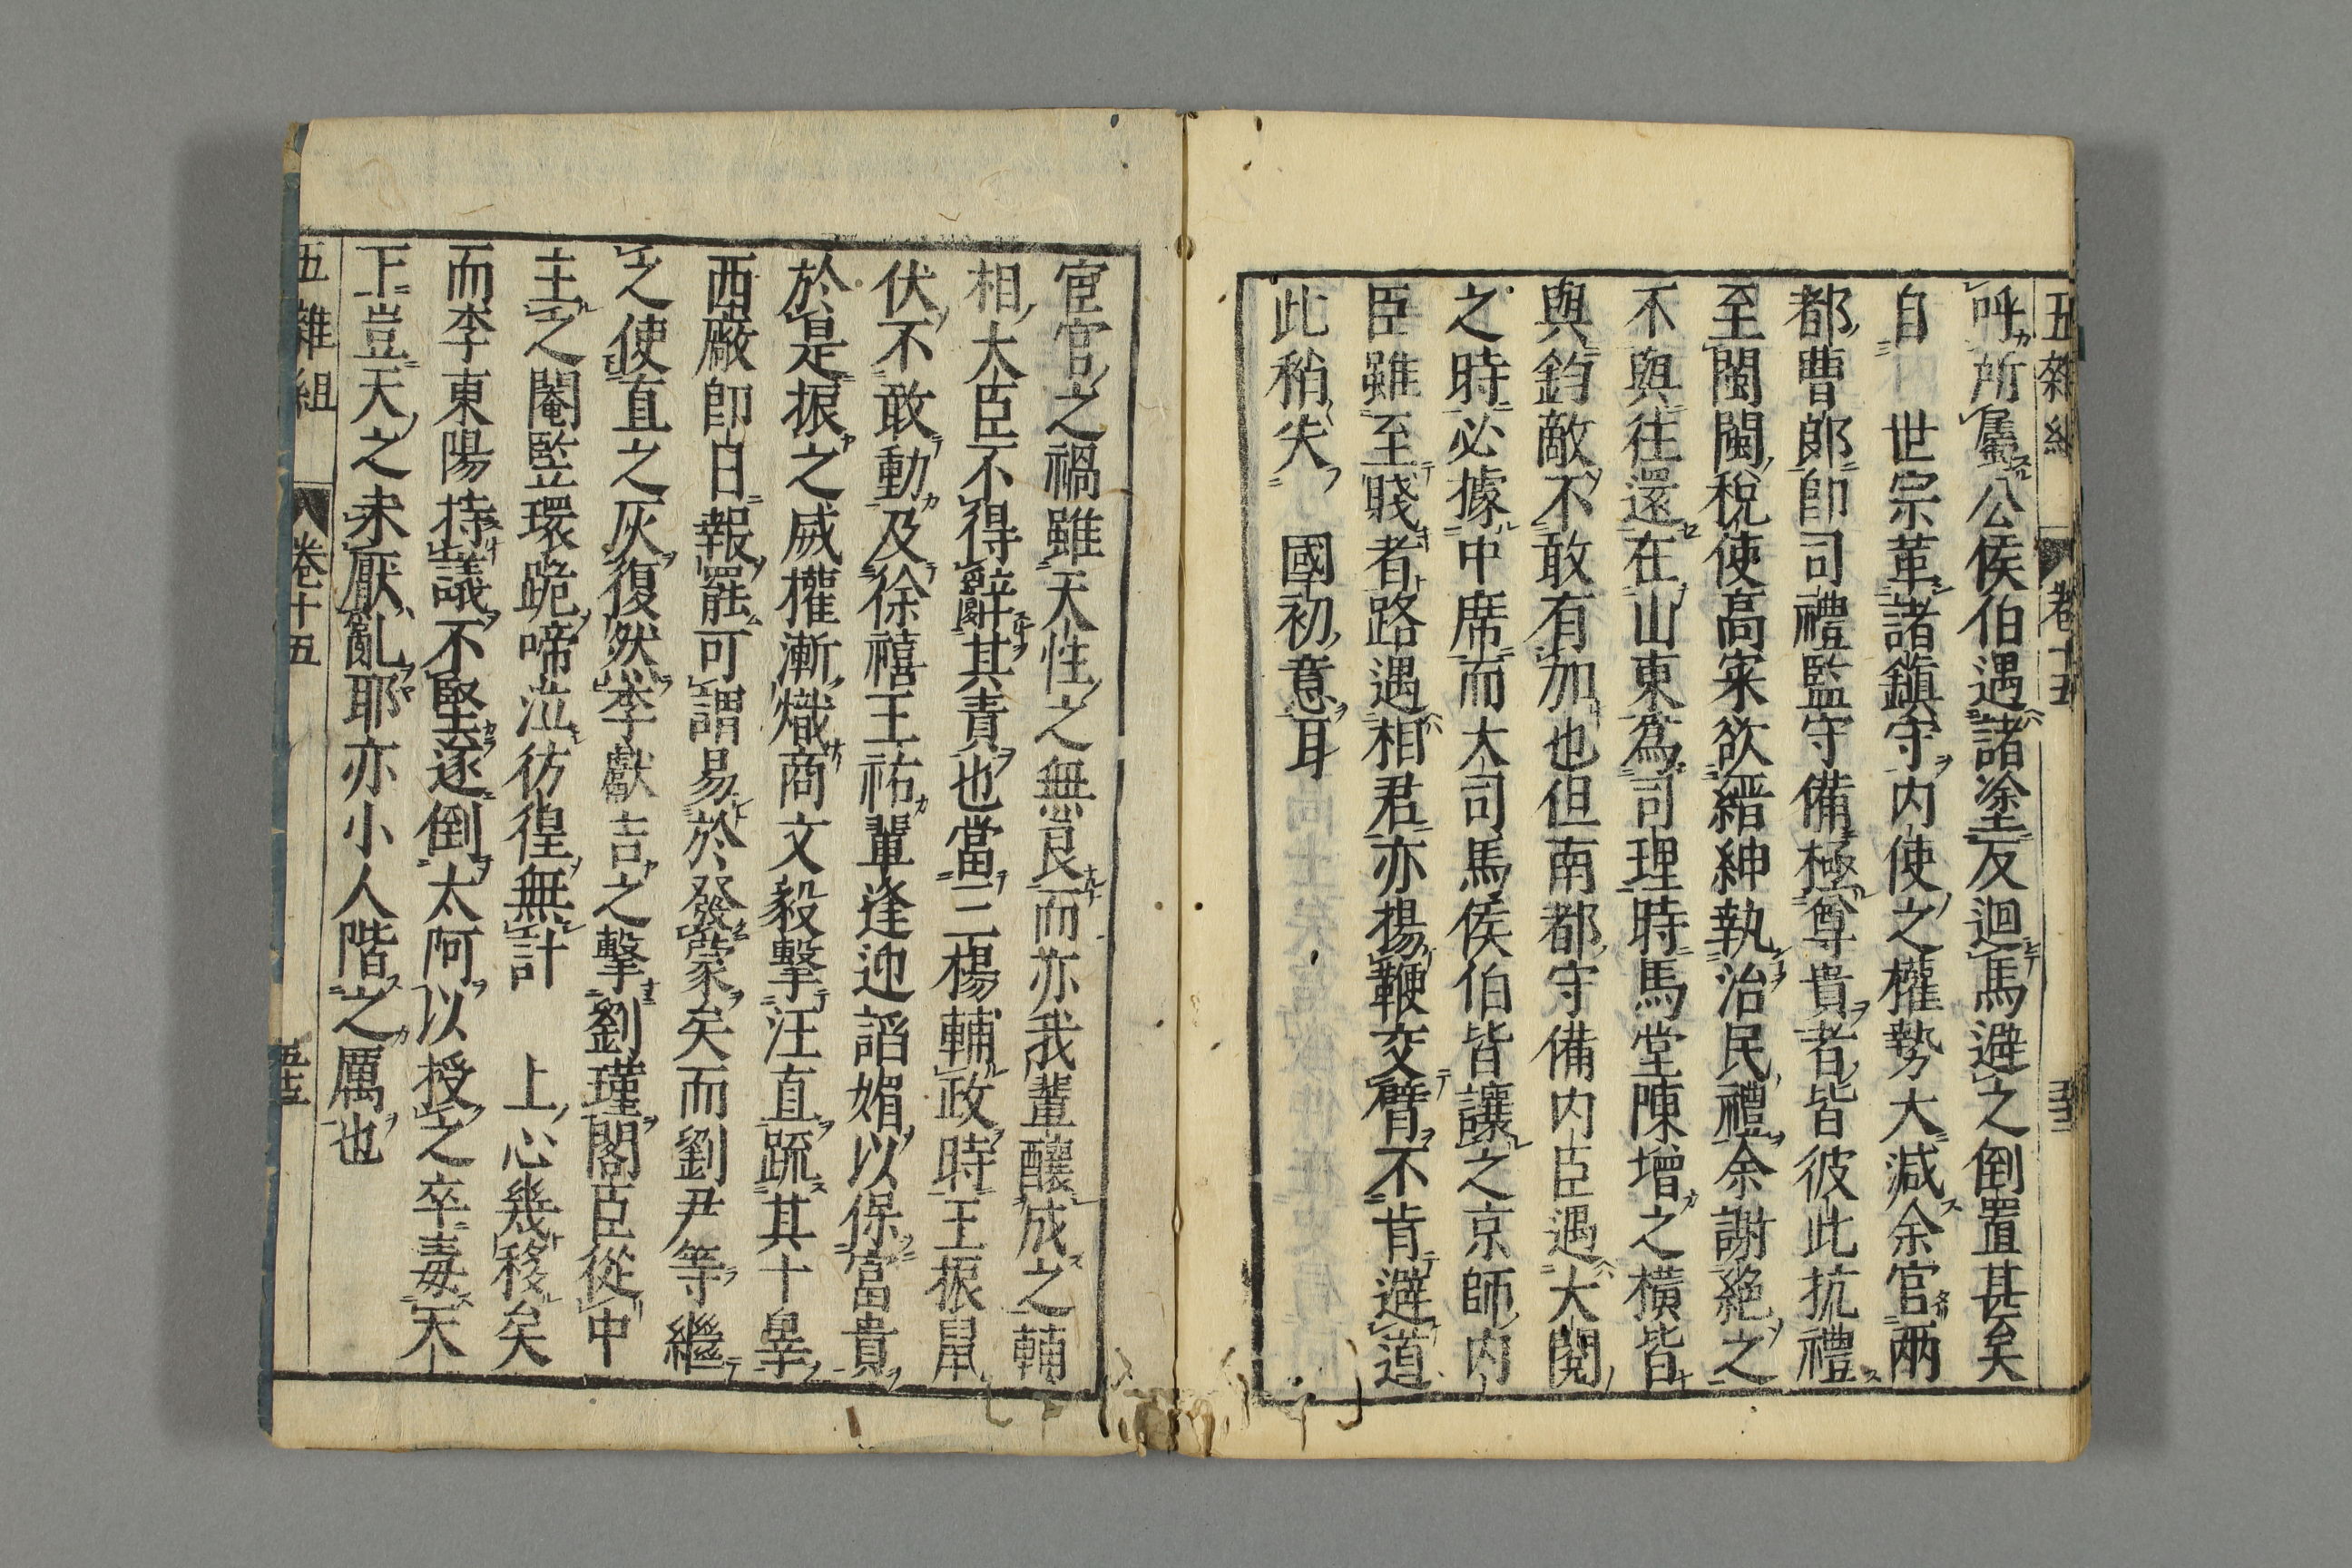 五雜組 卷十五
呼所屬公侯伯遇諸塗反迴馬避之倒置甚矣
自 世宗革諸鎮守內使之權勢大減余官兩
都曹郎卽司禮監守備極尊貴者皆彼此抗禮
至閩閩稅使高寀欲縉紳執治民禮余謝絕之
不與往還在山東爲司理時馬堂陳增之橫皆
與鈞敵不敢有加也但南都守備內臣遇大閱
之時必據中席而大司馬侯伯皆讓之京師內
臣雖至賤者路遇相君亦揚鞭交臂不肯避道
此稍失 國初意耳
宦官之禍雖天性之無良而亦我輩釀成之輔
相大臣不得辭其責也當三楊輔政時王振鼠
伏不敢動及徐禧王祐輩逢迎謟媚以保富貴
於是振之威權漸熾商文毅擊汪直疏其十辠
西廠卽日報罷可謂易於發蒙矣而劉尹等繼
之使直之灰復然李獻吉之擊劉瑾閣臣從中
主之閹監環跪啼泣彷徨無計 上心幾移矣
而李東陽持議不堅遂倒太阿以授之卒毒天
下豈天之未厭亂耶亦小人階之厲也
五雜組 卷十五